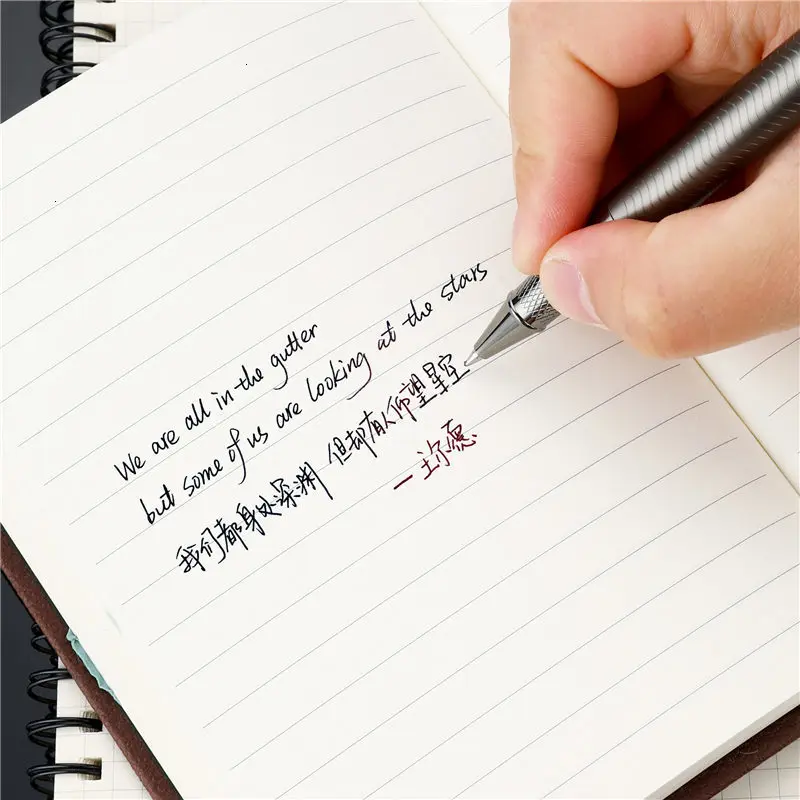 We are all in the gutter
but some of us are looking at the stars
我们都身处深渊 但却有人仰望星空
一王尔愿